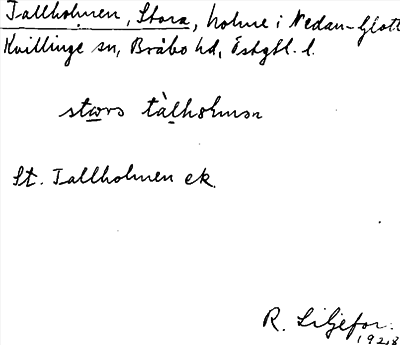 Tallholmen, Stora, holme i Nedan-Glott
Kvillinge sn, Bråbo hd, Östgtl. l.
stωro tàlholmən
St. Tallholmen ek.
R. Liljefor.
1928